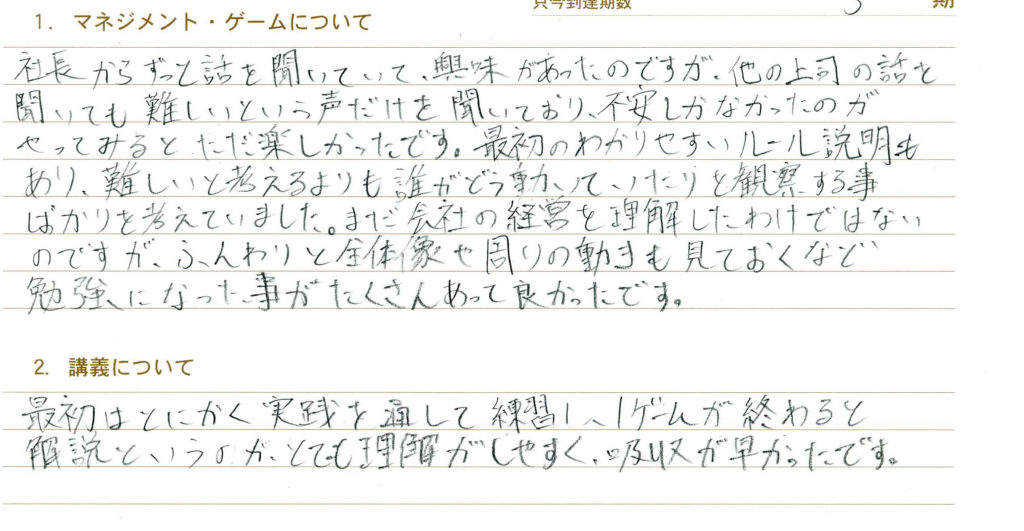 只今到達期数 5 期
1. マネジメント・ゲームについて
社長からずっと話を聞いていて、興味があったのですが、他の上司の話を
聞いても難しいという声だけを聞いており、不安しかなかったのが
やってみるとただ楽しかったです。最初のわかりやすいルール説明も
あり、難しいと考えるよりも誰がどう動いていたりと観察する事
ばかりを考えていました。まだ会社の経営を理解したわけではない
のですが、ふんわりと全体像や周りの動きも見ておくなど
勉強になった事がたくさんあって良かったです。
2. 講義について
最初はとにかく実践を通して練習し、1ゲームが終わると
解説というのが、とても理解がしやすく、吸収が早かったです。